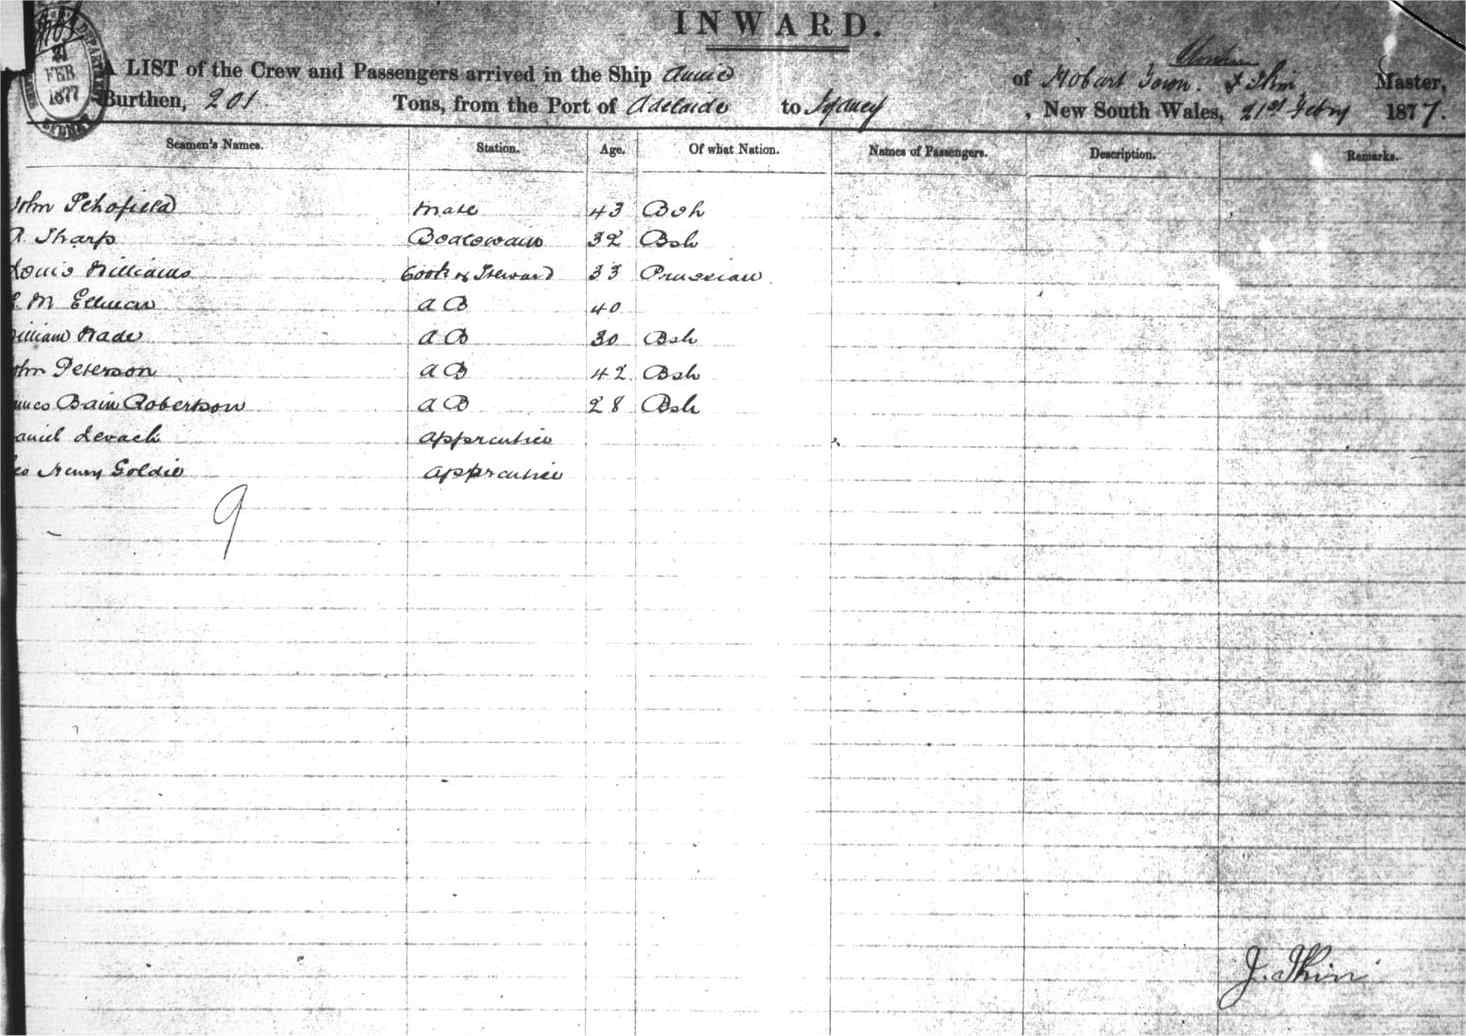 INWARD.
21
FEB
1877
SYDNEY
A LIST of the Crew and Passengers arrived in the Ship Annie of Hobart Town. J Thin Master,
Burthen, 201 Tons, from the Port of Adelaide to Sydney, New South Wales, 21st Febry 1877.
Seamen's Names. Station. Age. Of what Nation. Names of Passengers. Description. Remarks.
John Schofield Mate 43 Bsh
A. Sharp Boatswain 32 Bsh
Louis Williams Cook & Steward 33 Prussian
M Ellman A B 40
William Wade A B 30 Bsh
John Peterson A B 42 Bsh
James Bain Robertson A B 28 Bsh
Daniel Levack Apprentice
Geo Henry Goldie Apprentice
9
J. Thin